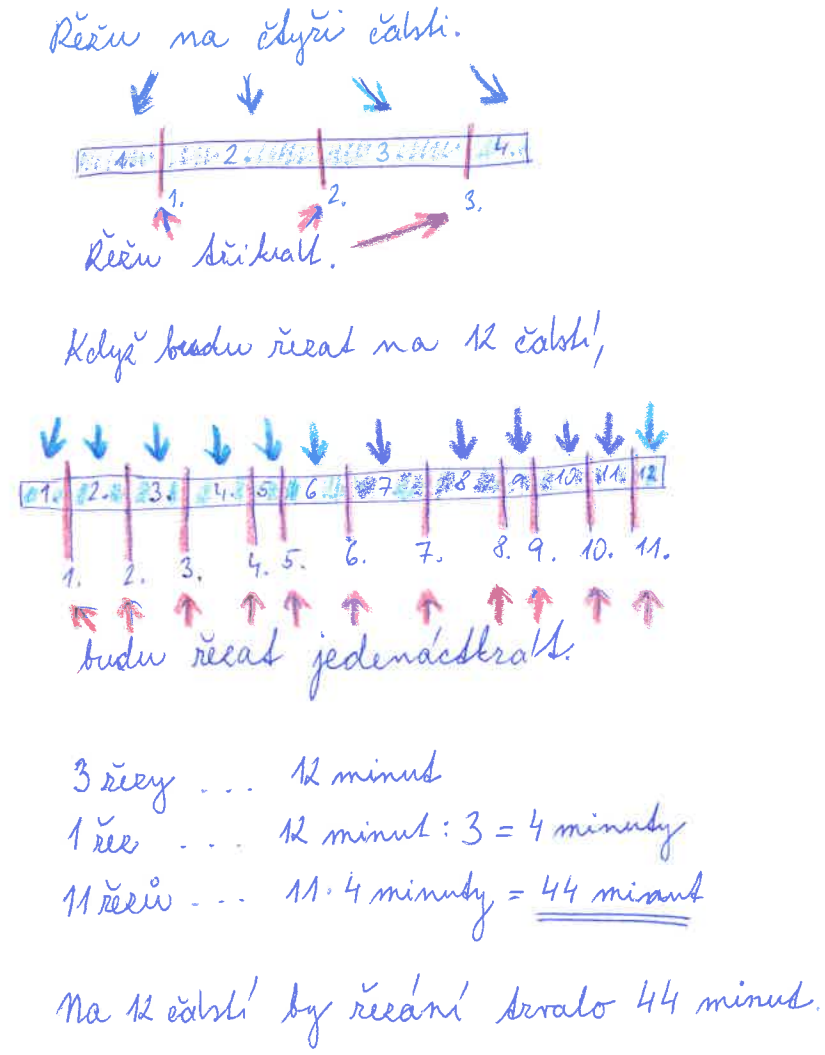 Řežu na čtyři části.
1. 2. 3 4.
1. 2. 3.
Řežu třikrát.
Když budu řezat na 12 částí,
1. 2. 3. 4. 5 6 7 8 9 10 11. 12
1. 2. 3. 4. 5. 6. 7. 8. 9. 10. 11.
budu řezat jedenáctkrát.
3 řezy ... 12 minut
1 řez ... 12 minut : 3 = 4 minuty
11 řezů ... 11 · 4 minuty = 44 minut
Na 12 částí by řezání trvalo 44 minut.